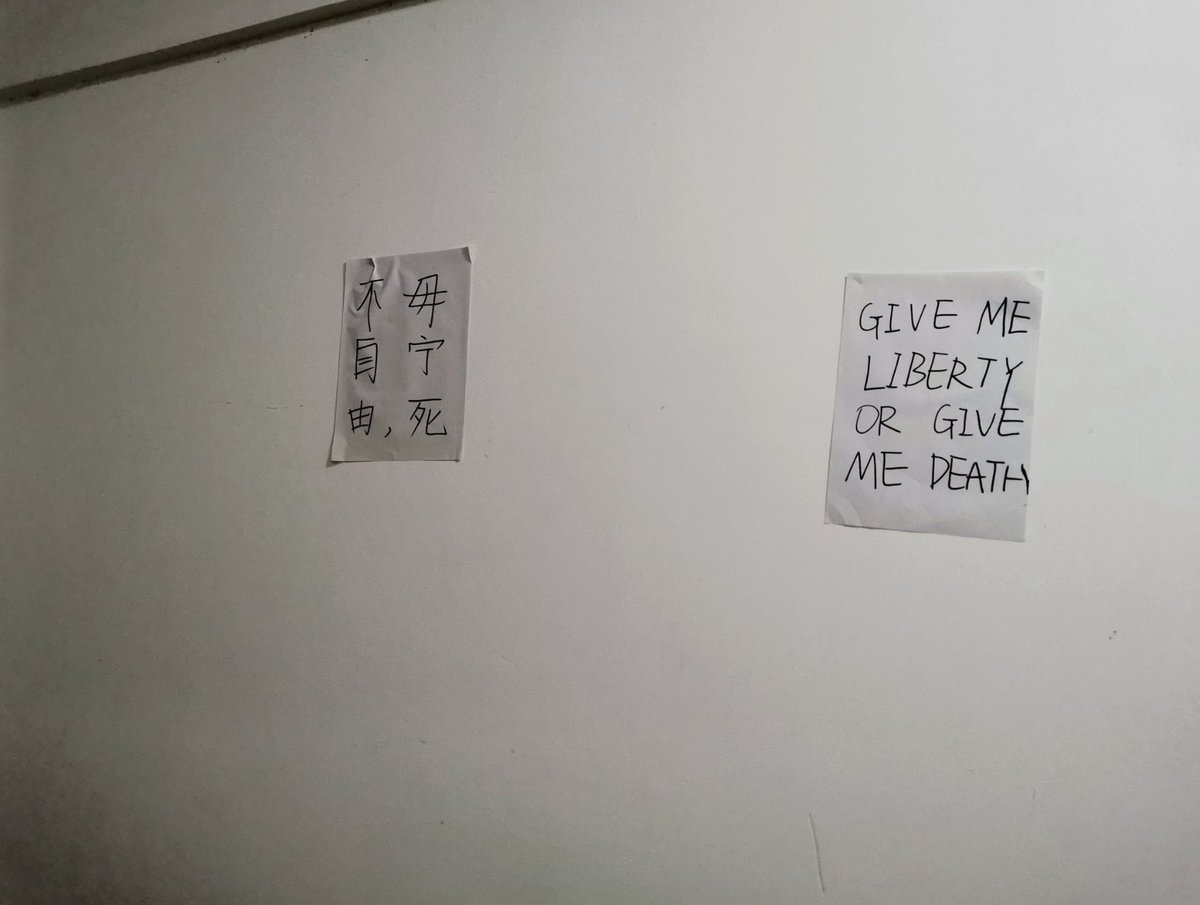 不自由,
毋宁死
GIVE ME
LIBERTY
OR GIVE
ME DEATH